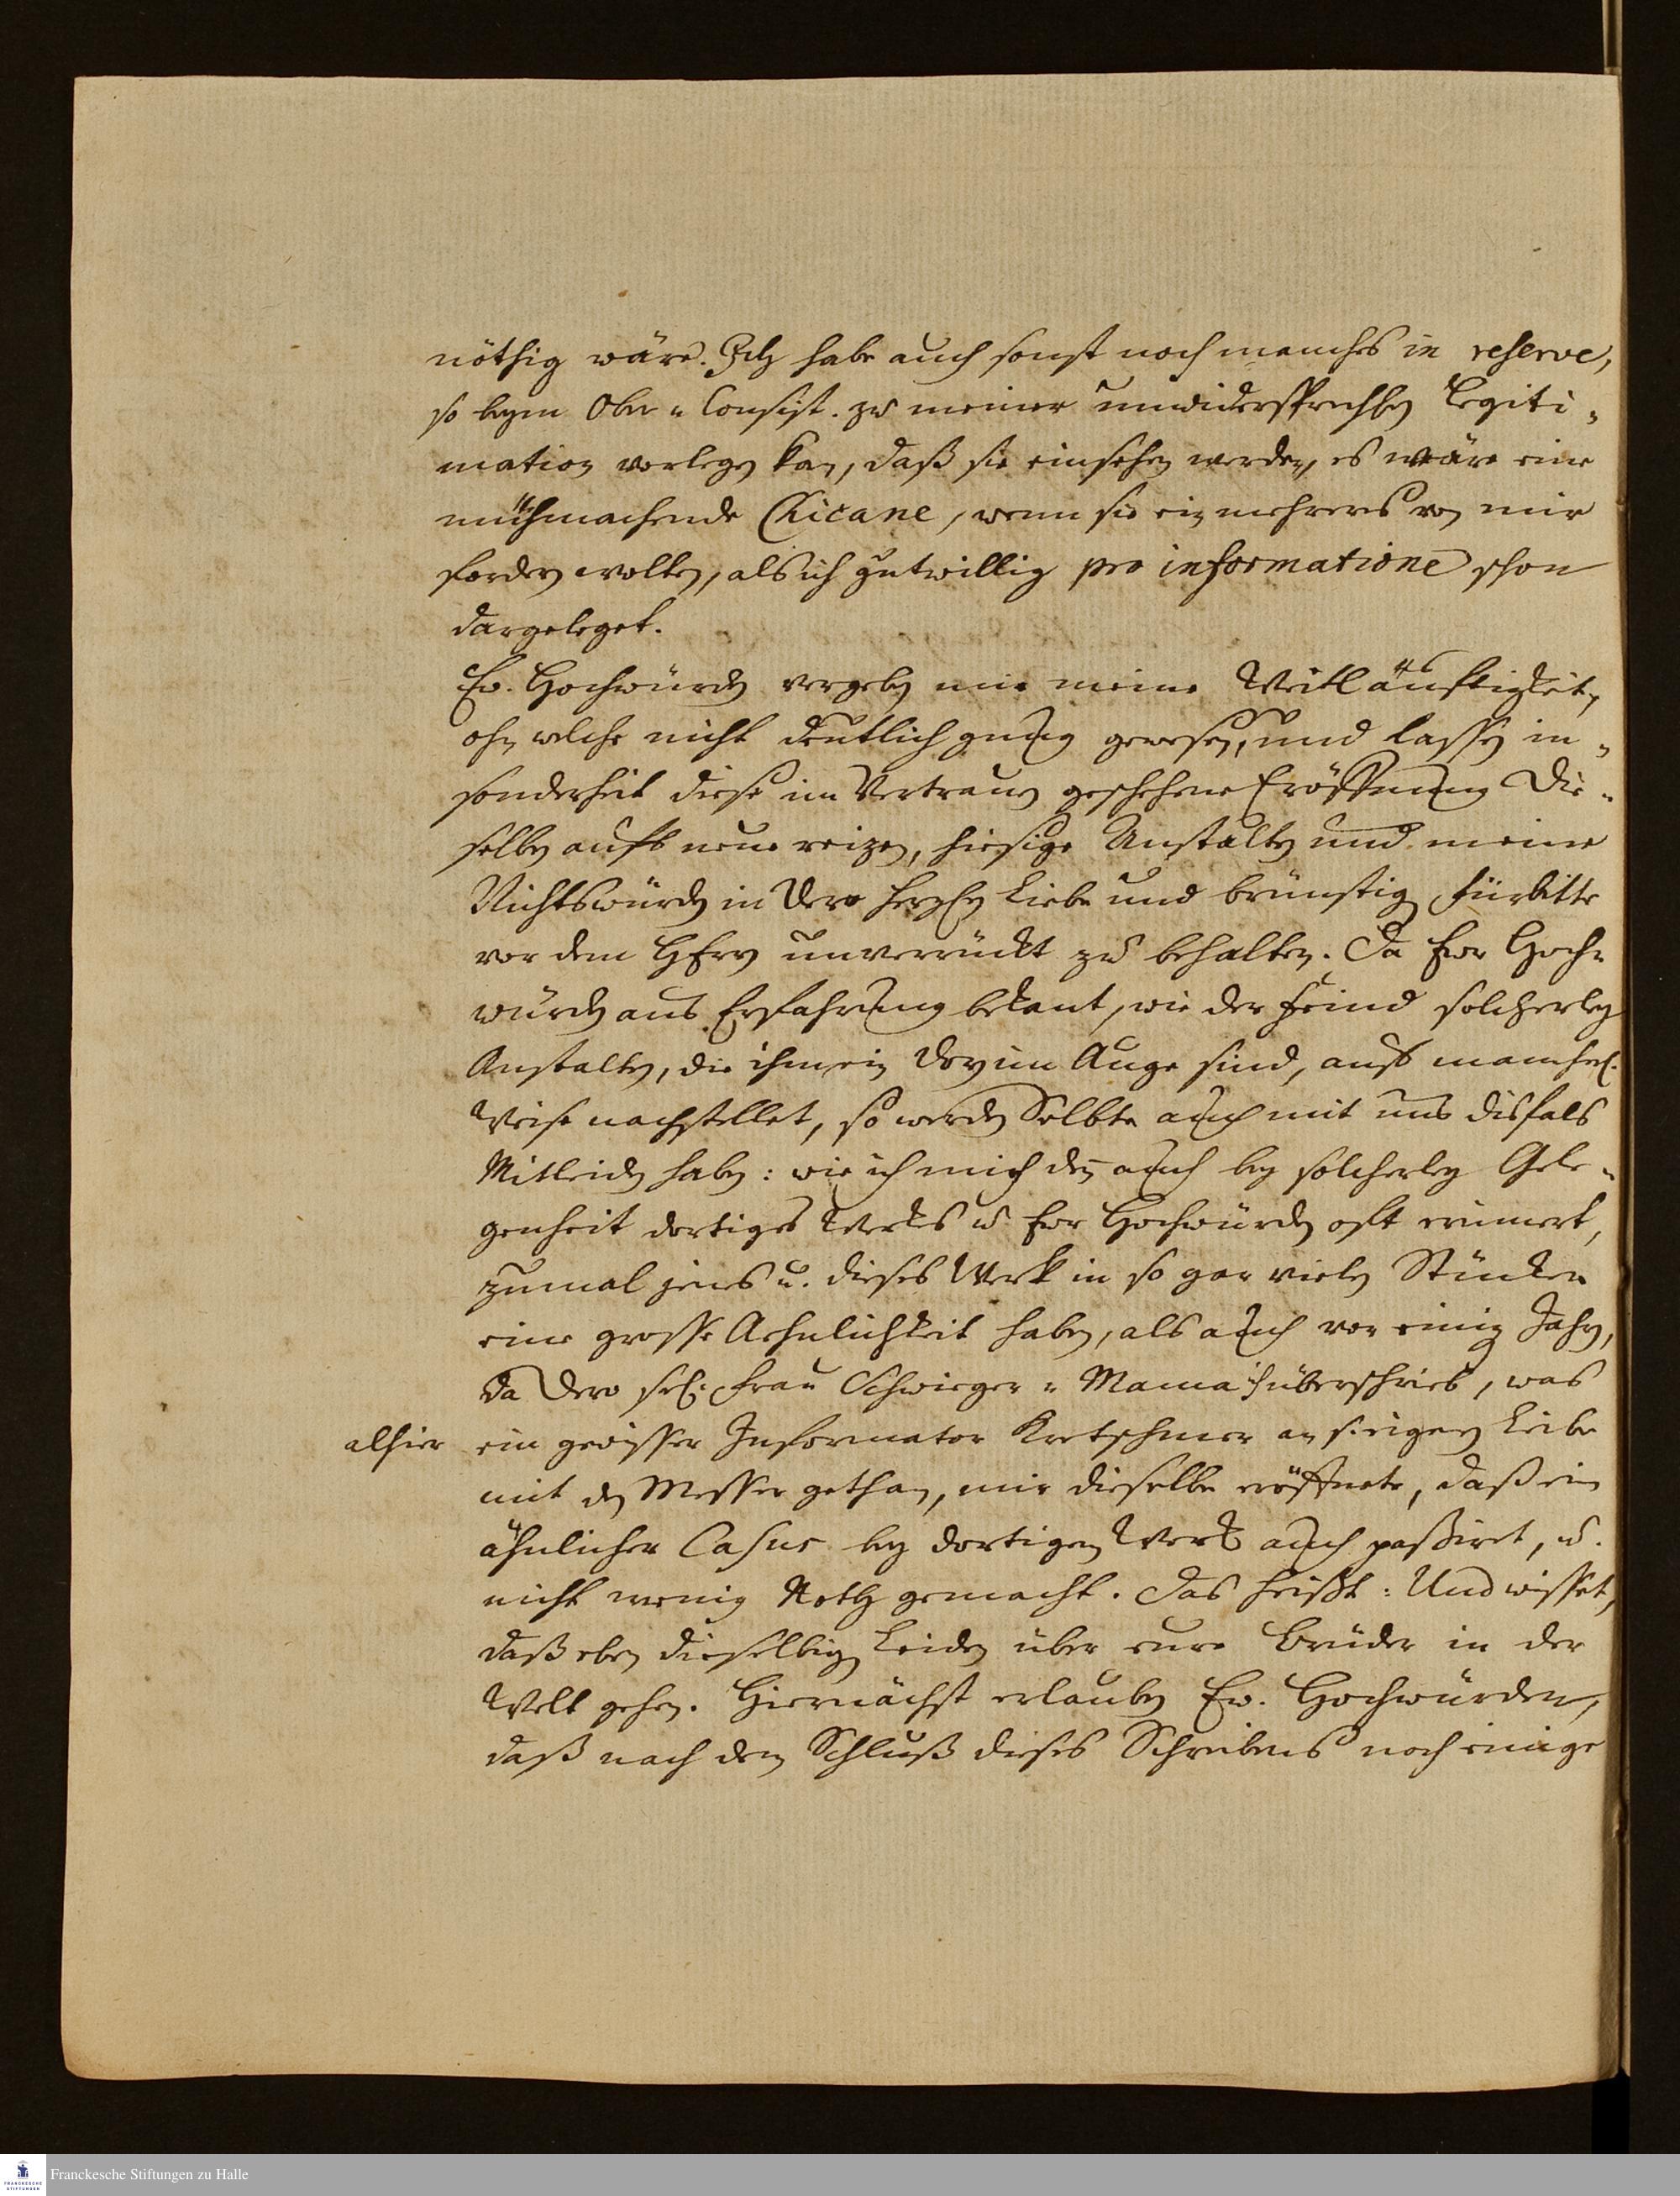 nöthig wäre. Ich habe auch sonst noch manches in reserve,
so beym Ober-Consist. zu meiner unwidersprechlichen Legiti-
mation vorlegen kan, daß sie einsehen werden, es wäre eine
mühmachende Chicane, wenn sie ein mehreres von mir
fordern wolten, als ich gutwillig pro informatione schon
dargeleget.
Ew. Hochwürden vergeben mir meine Weitläuftigkeit,
ohn welche nicht deutlich gnung gewesen, und lassen in-
sonderheit diese im Vertrauen geschehene Eröffnung Die-
selben aufs neue reizen, hiesige Anstalten und meine
Nichtswürden in Dero herzlichen Liebe und brünstigen Fürbitte
vor dem HErrn unverrückt zu behalten. Da Ewr Hoch-
würden aus Erfahrung bekant, wie der Feind solcherley
Anstalten, die ihm ein Dorn im Auge sind, auf mancherl.
Weise nachstellet, so werden Selbte auch mit uns disfals
Mitleiden haben: wie ich mich den auch bey solcherley Gele-
genheit dortiges Werks u. Ewr Hochwürden oft erinnert,
zumal jenes u. dieses Werk in so gar vielen Stücken
eine grosse Aehnlichkeit haben, als auch vor einigen Jahren,
da Dero sel. Frau Schwieger-Mama ich überschrieb, was
alhier ein gewisser Informator Kretschmer an s. eigenen Leibe
mit dem Messer gethan, mir dieselbe eröffnete, daß ein
ähnlicher Casus bey dortigen Werk auch passiret, u.
nicht wenig Noth gemacht. Das heißt: Und wisset,
daß eben dieselbigen Leiden über eure Brüder in der
Welt gehen. Hiernächst erlauben Ew. Hochwürden,
daß nach dem Schluß dieses Schreibens noch einige
Franckesche Stiftungen zu Halle